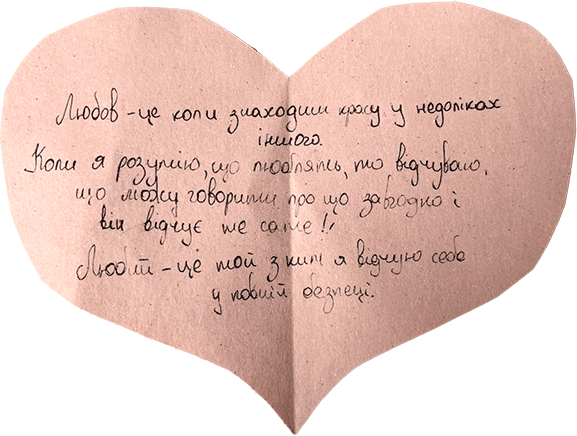 Любов - це коли знаходиш красу у недоліках
іншого.
Коли я розумію, що люблять, то відчуваю,
що можу говорити про що завгодно і
він відчує те саме!!
Любий - це той з ким я відчую себе
у повній безпеці.